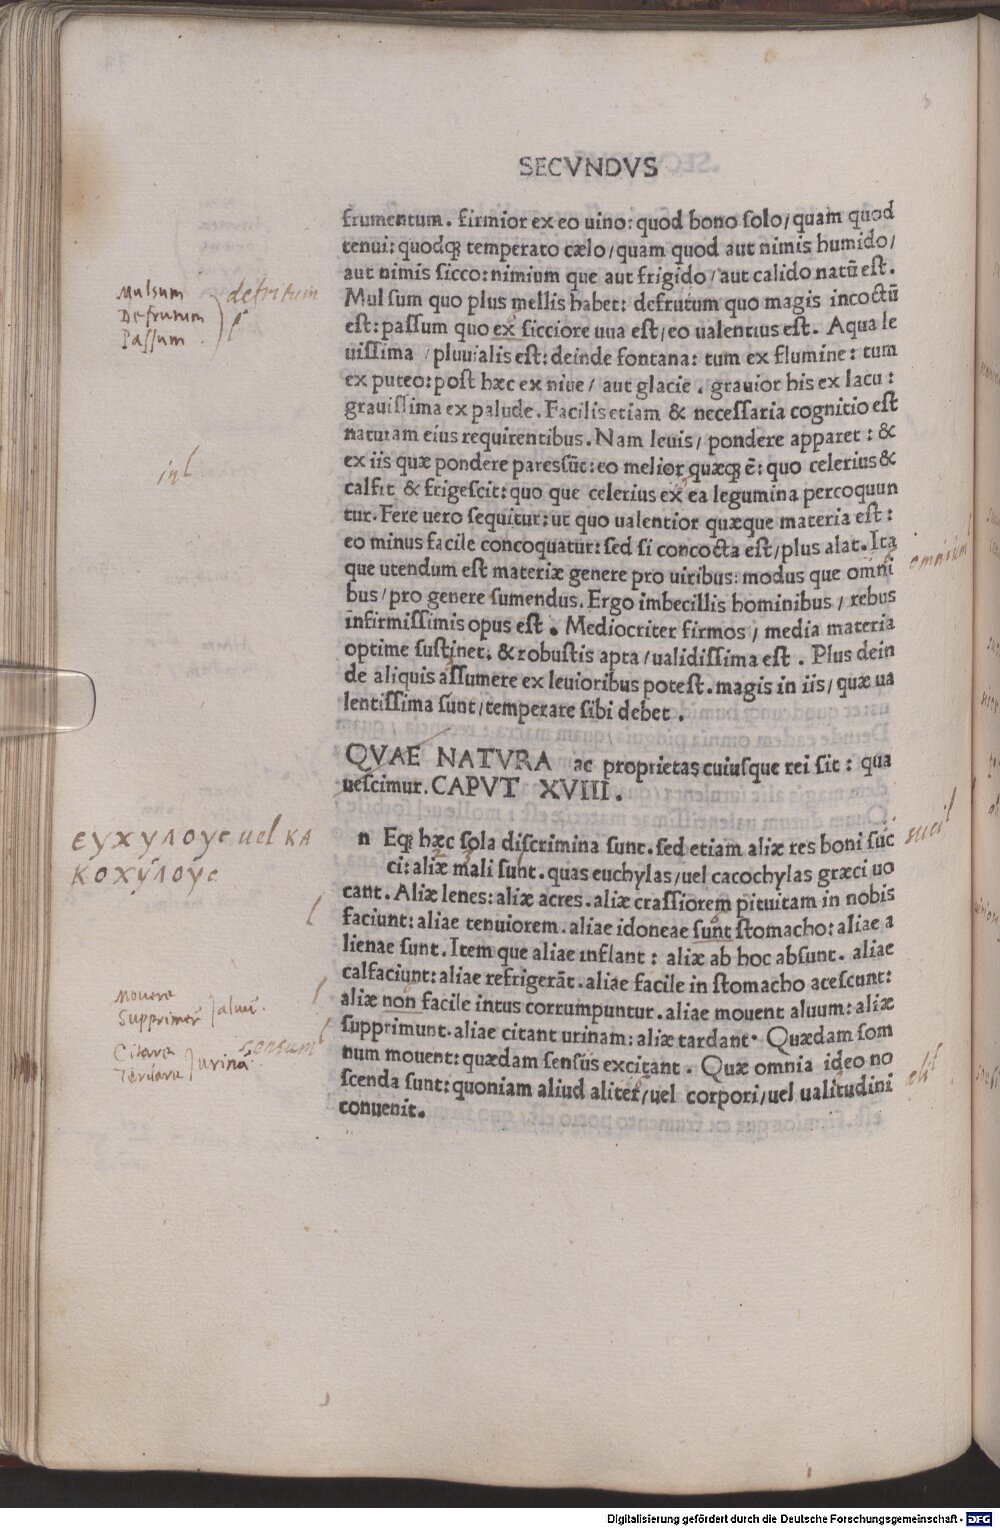 SECVNDVS
frumentum. firmior ex eo uino: quod bono ſolo/quam quod
tenui: quodq; temperato cælo/quam quod aut nimis humido/
aut nimis ſicco: nimium que aut frigido/aut calido natũ eſt.
Mulſum quo plus mellis habet: defrutum quo magis incoctũ
eſt: paſſum quo ex ſicciore uua eſt/eo ualentius eſt. Aqua le
uiſſima /pluuialis eſt: deinde fontana: tum ex flumine: tum
ex puteo: poſt hæc ex niue/ aut glacie. grauior his ex lacu:
grauiſſima ex palude. Facilis etiam & neceſſaria cognitio eſt
naturam eius requirentibus. Nam leuis/ pondere apparet: &
ex iis quæ pondere pares sũt: eo melior quæq; ẽ: quo celerius &
calfit & frigeſcit: quo que celerius ex ea legumina percoquun
tur. Fere uero ſequitur: ut quo ualentior quæque materia eſt:
eo minus facile concoquatur: sed ſi concocta eſt/plus alat. Ita
que utendum eſt materiæ genere pro uiribus: modus que omni
bus/pro genere ſumendus. Ergo imbecillis hominibus/ rebus
infirmiſſimis opus eſt. Mediocriter firmos/ media materia
optime ſuſtinet. & robuſtis apta/ualidiſſima eſt. Plus dein
de aliquis aſſumere ex leuioribus poteſt. magis in iis/quæ ua
lentiſſima ſunt/temperare ſibi debet.
QVAE NATVRA ac proprietas cuiuſque rei ſit: qua
ueſcimur. CAPVT XVIII.
n Eq; hæc ſola diſcrimina ſunt. sed etiam aliæ res boni ſuc
ci: aliæ mali ſunt. quas euchylas/uel cacochylas græci uo
cant. Aliæ lenes: aliæ acres. aliæ craſſiorem pituitam in nobis
faciunt: aliae tenuiorem. aliae idoneae ſunt ſtomacho: aliae a
lienae ſunt. Item que aliae inflant: aliæ ab hoc abſunt. aliae
calfaciunt: aliae refrigerãt. aliae facile in ſtomacho aceſcunt:
aliæ non facile intus corrumpuntur. aliae mouent aluum: aliæ
ſupprimunt. aliae citant urinam: aliæ tardant. Quædam ſom
num mouent: quædam ſenſus excitant. Quæ omnia ideo no
ſcenda ſunt: quoniam aliud aliter/uel corpori/uel ualitudini
conuenit.
Mulsum
Defrutum
Passum
defritum
inſ
omnium
ευχυλους uel κα
κοχύλους
succi
Mouere
Supprimere
aluũ.
Citare
Tardare
urinã
Digitalisierung gefördert durch die Deutsche Forschungsgemeinschaft - DFG